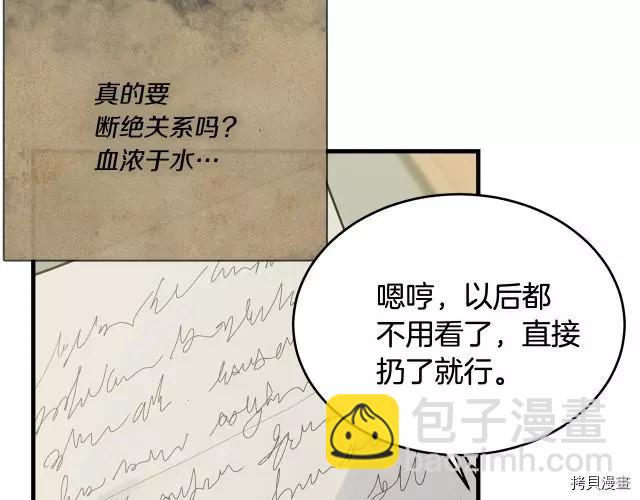 真的要
断绝关系吗？
血浓于水…
嗯哼，以后都
不用看了，直接
扔了就行。
包子漫畫
baozimh.com
拷貝漫畫